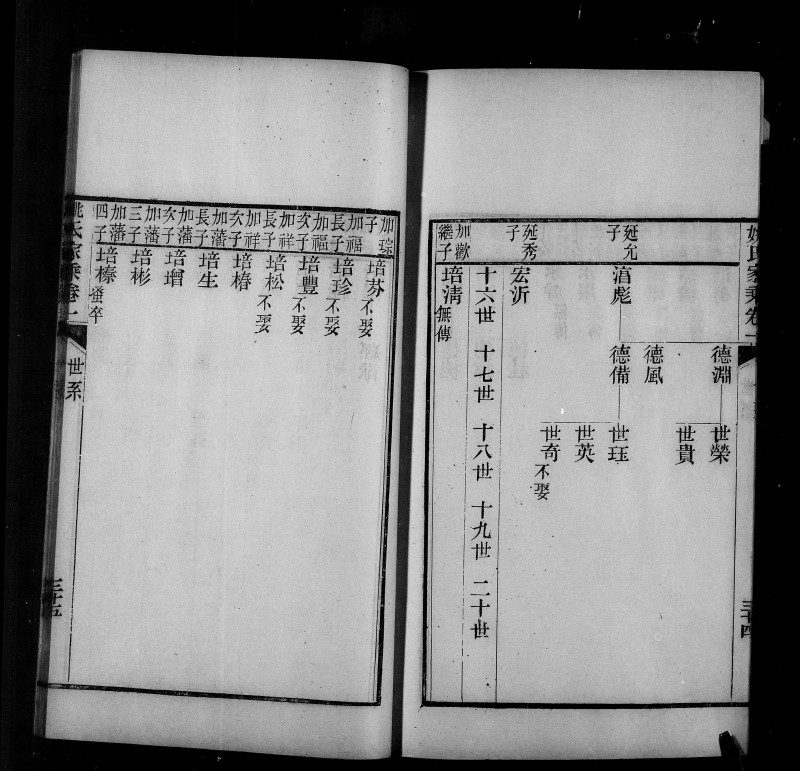 姚氏家乘卷一
三十四
延允子
湻彪
德淵
世榮
世貴
德風
德備
世珏
世英
世奇不娶
延秀子
宏沂
十六世 十七世 十八世 十九世 二十世
加歡繼子
培淸無傳
加琮子
培芬不娶
加福長子
培珍不娶
加福次子
培豐不娶
加祥長子
培松不娶
加祥次子
培椿
加藩長子
培生
加藩次子
培增
加藩三子
培彬
加藩四子
培榛蚤卒
姚氏家乘卷一
世系
三十五